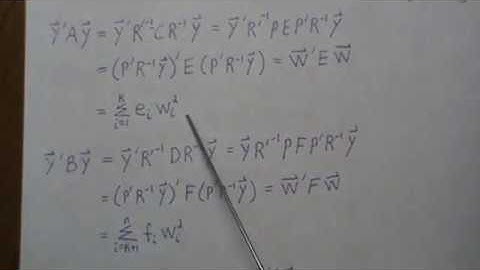 Y⃗'AY⃗ = Y⃗'R'⁻¹CR⁻¹Y⃗ = Y⃗'R'⁻¹PEP'R⁻¹Y⃗
= (P'R⁻¹Y⃗)'E(P'R⁻¹Y⃗) = W⃗'EW⃗
= Σᵢ₌₁ᴷ eᵢwᵢ²
Y⃗'BY⃗ = Y⃗'R'⁻¹DR⁻¹Y⃗ = Y⃗R'⁻¹PFP'R⁻¹Y⃗
= (P'R⁻¹Y⃗)'F(P'R⁻¹Y⃗) = W⃗'FW⃗
= Σᵢ₌ₖ₊₁ⁿ fᵢwᵢ²